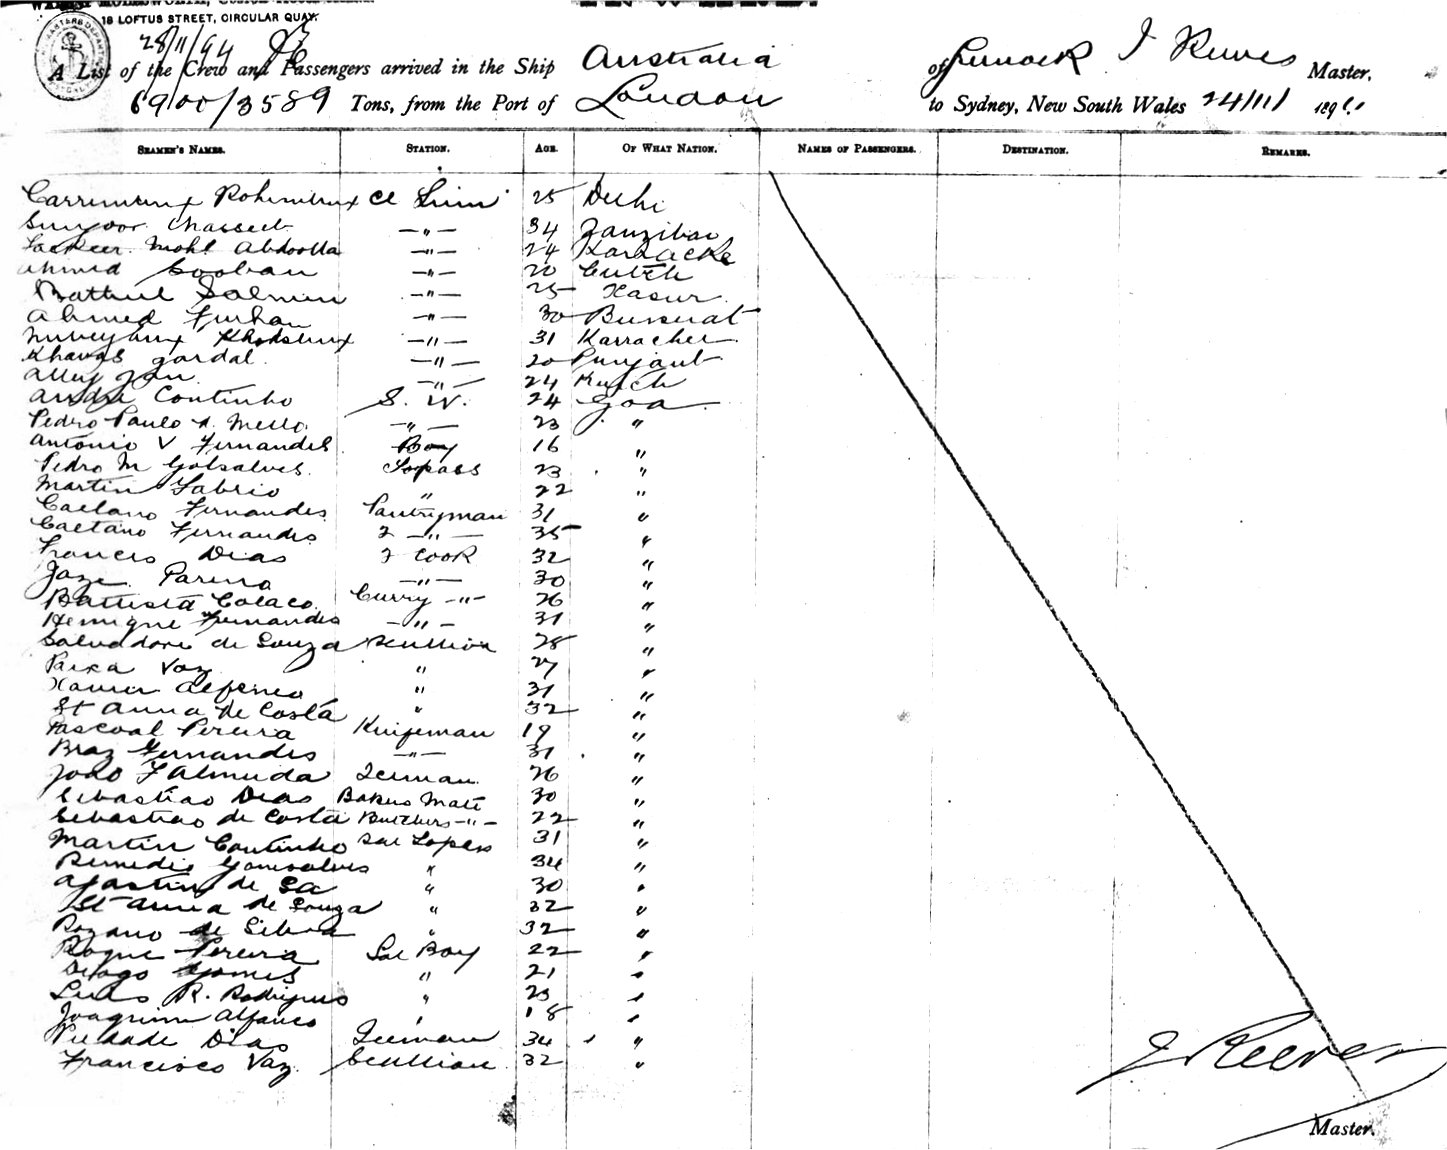 18 LOFTUS STREET, CIRCULAR QUAY.
28/11/94
A List of the Crew and Passengers arrived in the Ship Australia of Greenock J Reeves Master,
6900/3589 Tons, from the Port of London to Sydney, New South Wales 24/11/ 189
SEAMEN'S NAMES. STATION. AGE. OF WHAT NATION. NAMES OF PASSENGERS. DESTINATION. REMARKS.
25 Delhi
34 Zanzibar
Mohd. Abdoolla —"— 24
Ahmed —"— 20 Cutch
—"— 25
Ahmed Furhan —"— 30
—"— 31 Karrachee
Khavas —"— 20 Punjaub
Ally Jan —"— 24 Kutch
Andre Coutinho S. W. 24 Goa
Pedro Paulo d. Mello —"— 23 "
Antonio V Fernandes Boy 16 "
Pedro M Golsalves Topass 23 "
Martin Fabrio " 22 "
Caetano Fernandes Pantryman 31 "
Caetano Fernandes 2 —"— 35 "
Francis Dias 2 Cook 32 "
—"— 30 "
Battista Colaco Curry —"— 26 "
Henrique Fernandes —"— 31 "
Salvadore de Souza Scullion 28 "
Vaz " 27 "
Xavier " 31 "
St Anna de Costa " 32 "
Pascoal Pereira Knifeman 19 "
Braz Fernandes —"— 31 "
Joao F Almeida Iceman 26 "
Sebastiao Dias Bakers Mate 30 "
Sebastiao de Costa Butchers —"— 22 "
Martin Coutinho Sal Topass 31 "
" 34 "
Agastin de Sa " 30 "
St Anna de Souza " 32 "
Rozario de Silva " 32 "
Roque Pereira Sal Boy 22 "
Diogo Gomes " 21 "
Luis R. Rodrigues " 23 "
Joaquim Alfonco " 18 "
Piedade Dias Iceman 34 "
Francisco Vaz Scullion 32 "
J Reeves
Master.